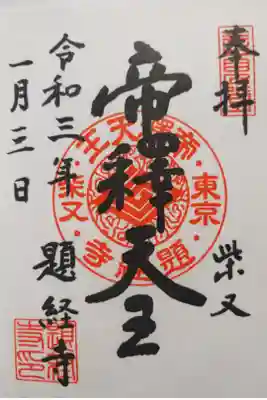 奉拝
柴又
帝釋天王
令和三年
一月三日
題経寺
帝釋天王
東京
柴又
題経寺